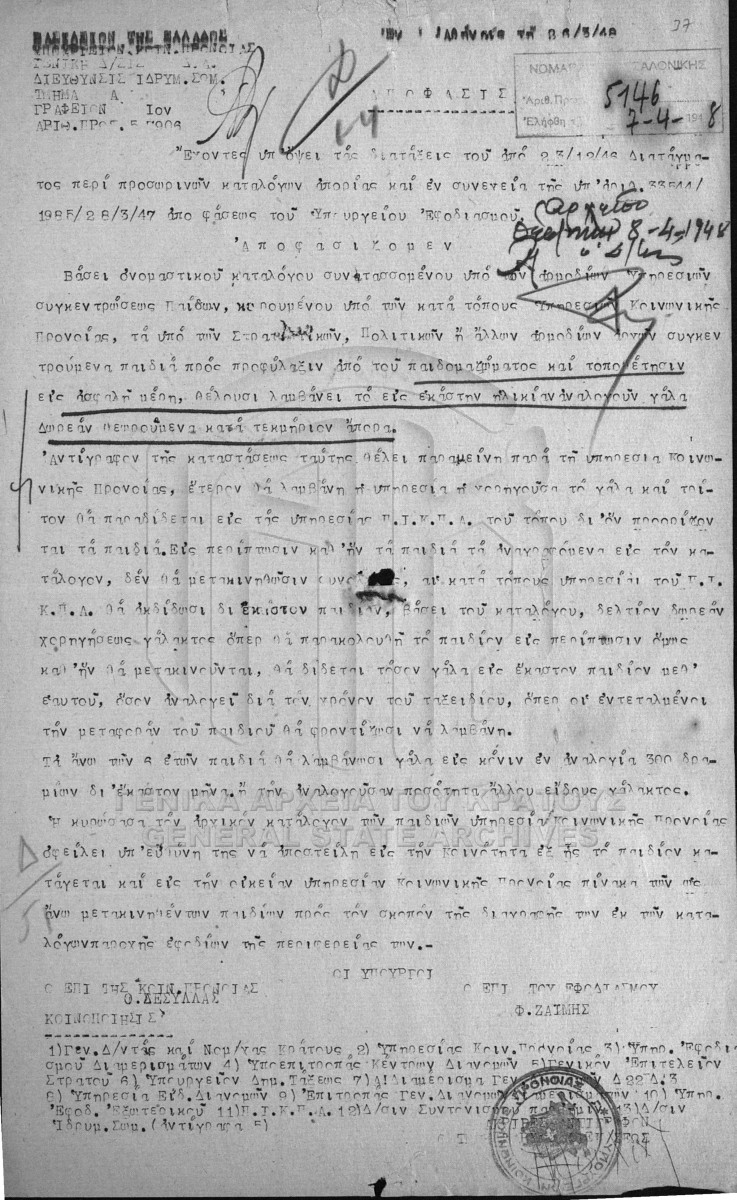 ΒΑΣΙΛΕΙΟΝ ΤΗΣ ΕΛΛΑΔΟΣ
ΥΠΟΥΡΓΕΙΟΝ ΚΟΙΝ.ΠΡΟΝΟΙΑΣ
ΔΙΕΥΘΥΝΣΙΣ ΙΔΡΥΜ.ΣΩΜ.
ΤΜΗΜΑ Α
ΓΡΑΦΕΙΟΝ Ιον
ΑΡΙΘ.ΠΡΩΤ.
Ἐν Ἀθήναις τῇ 26/3/48
37
ΝΟΜΑΡ ΣΑΛΟΝΙΚΗΣ
Ἀριθ. Πρ 5146
Ἐλήφθη τ 7-4-1918
ΑΠΟΦΑΣΙΣ
Ἔχοντες ὑπ'ὄψει τάς διατάξεις τοῦ ἀπό 23/12/46 Διατάγμα-
τος περί προσωρινῶν καταλόγων ἀπορίας καί ἐν συνεχεία τῆς ὑπ'ἀριθ. 33544/
1985/28/3/47 ἀπο φάσεως τοῦ Ὑπουργείου Ἐφοδιασμοῦ.
8-4-1948
Ἀποφασίζομεν
Βάσει ὀνομαστικοῦ καταλόγου συντασσομένου ὑπό τῶν ἁρμοδίων Ὑπηρεσιῶν
συγκεντρώσεως Παίδων, κυρουμένου ὑπό τῶν κατά τόπους Ὑπηρεσιῶν Κοινωνικῆς
Προνοίας, τά ὑπό τῶν Στρατιωτικῶν, Πολιτικῶν ἤ ἄλλων ἁρμοδίων ἀρχῶν συγκεν
τρούμενα παιδιά πρός προφύλαξιν ἀπό τοῦ παιδομαζώματος καί τοποθέτησιν
εἰς ἀσφαλῆ μέρη, θέλουσι λαμβάνει τό εἰς ἑκάστην ἡλικίαν ἀναλογοῦν γάλα
Δωρεάν θεωρούμενα κατά τεκμήριον ἄπορα.
Ἀντίγραφον τῆς καταστάσεως ταύτης θέλει παραμείνη παρά τῇ ὑπηρεσία Κοινω-
νικῆς Προνοίας, ἕτερον θά λαμβάνη ἡ ὑπηρεσία ἡ χορηγοῦσα τό γάλα καί τρί-
τον θά παραδίδεται εἰς τάς ὑπηρεσίας Π.Ι.Κ.Π.Α. τοῦ τόπου δι'ὅν προορίζον
ται τά παιδιά. Εἰς περίπτωσιν καθ'ἥν τά παιδιά τά ἀναγραφόμενα εἰς τόν κα-
τάλογον, δέν θά μετακινηθῶσιν αἱ κατά τόπους ὑπηρεσίαι τοῦ Π.Ι.
Κ.Π.Α. θά ἐκδίδωσι δι ἕκαστον παιδίον, βάσει τοῦ καταλόγου, δελτίον δωρεάν
χορηγήσεως γάλακτος ὅπερ θά παρακολουθῆ τό παιδίον εἰς περίπτωσιν ὅμως
καθ'ἥν θά μετακινοῦνται, θά δίδεται τόσον γάλα εἰς ἕκαστον παιδίον μεθ'
ἑαυτοῦ, ὅσον ἀναλογεῖ διά τόν χρόνον τοῦ ταξειδίου, ὅπερ οἱ ἐντεταλμένοι
τήν μεταφοράν τοῦ παιδιοῦ θά φροντίζωσι νά λαμβάνη.
Τά ἄνω τῶν 6 ἐτῶν παιδιά θά λαμβάνωσι γάλα εἰς κόνιν ἐν ἀναλογία 300 δρα-
μίων δι'ἕκαστον μῆνα ἤ τήν ἀναλογοῦσαν ποσότητα ἄλλου εἴδους γάλακτος.
ΓΕΝΙΚΑ ΑΡΧΕΙΑ ΤΟΥ ΚΡΑΤΟΥΣ
GENERAL STATE ARCHIVES
Ἡ κυρώσασα τόν ἀρχικόν κατάλογον τῶν παιδιῶν ὑπηρεσία Κοινωνικῆς Προνοίας
ὀφείλει ὑπ'εὐθύνη της νά ἀποστείλη εἰς τήν Κοινότητα ἐξ ἧς τό παιδίον κα-
τάγεται καί εἰς τήν οἰκείαν ὑπηρεσίαν Κοινωνικῆς Προνοίας πίνακα τῶν ὡς
ἄνω μετακινηθέντων παιδιῶν πρός τόν σκοπόν τῆς διαγραφῆς των ἐκ τῶν κατα-
λόγων παροχῆς ἐφοδίων τῆς περιφερείας των.-
ΟΙ ΥΠΟΥΡΓΟΙ
Ο ΕΠΙ ΤΗΣ ΚΟΙΝ.ΠΡΟΝΟΙΑΣ Ο ΕΠΙ ΤΟΥ ΕΦΟΔΙΑΣΜΟΥ
Θ.ΔΕΣΥΛΛΑΣ Φ.ΖΑΙΜΗΣ
ΚΟΙΝΟΠΟΙΗΣΙΣ
1)Γεν.Δ/ντάς καί Νομ/χας Κράτους 2) Ὑπηρεσίας Κοιν.Προνοίας 3) Ὑπηρ. Ἐφοδια
σμοῦ Διαμερισμάτων 4) Ὑποεπιτροπάς Κέντρων Διανομῶν 5)Γενικόν Ἐπιτελεῖον
Στρατοῦ 6) Ὑπουργεῖον Δημ.Τάξεως 7)Α!Διαμέρισμα Γεν.
8) Ὑπηρεσία Εἰδ.Διανομῶν 9) Ἐπιτροπάς Γεν.Διανομῶν 10) Ὑπηρ.
Ἐφοδ.Ἐξωτερικοῦ 11)Π.Ι.Κ.Π.Α. 12)Δ/σιν Συντονισμοῦ 13)Δ/σιν
Ἱδρυμ.Σωμ.(ἀντίγραφα 5)